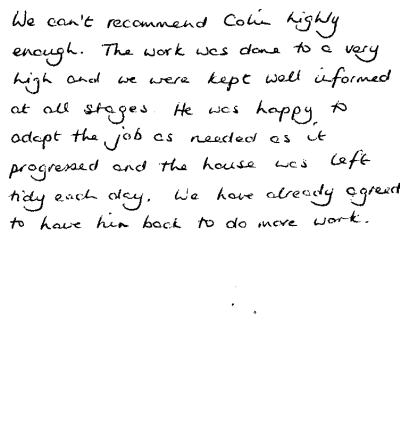 We can't recommend Colin highly
enough. The work was done to a very
high and we were kept well informed
at all stages. He was happy to
adapt the job as needed as it
progressed and the house was left
tidy each day. We have already agreed
to have him back to do more work.